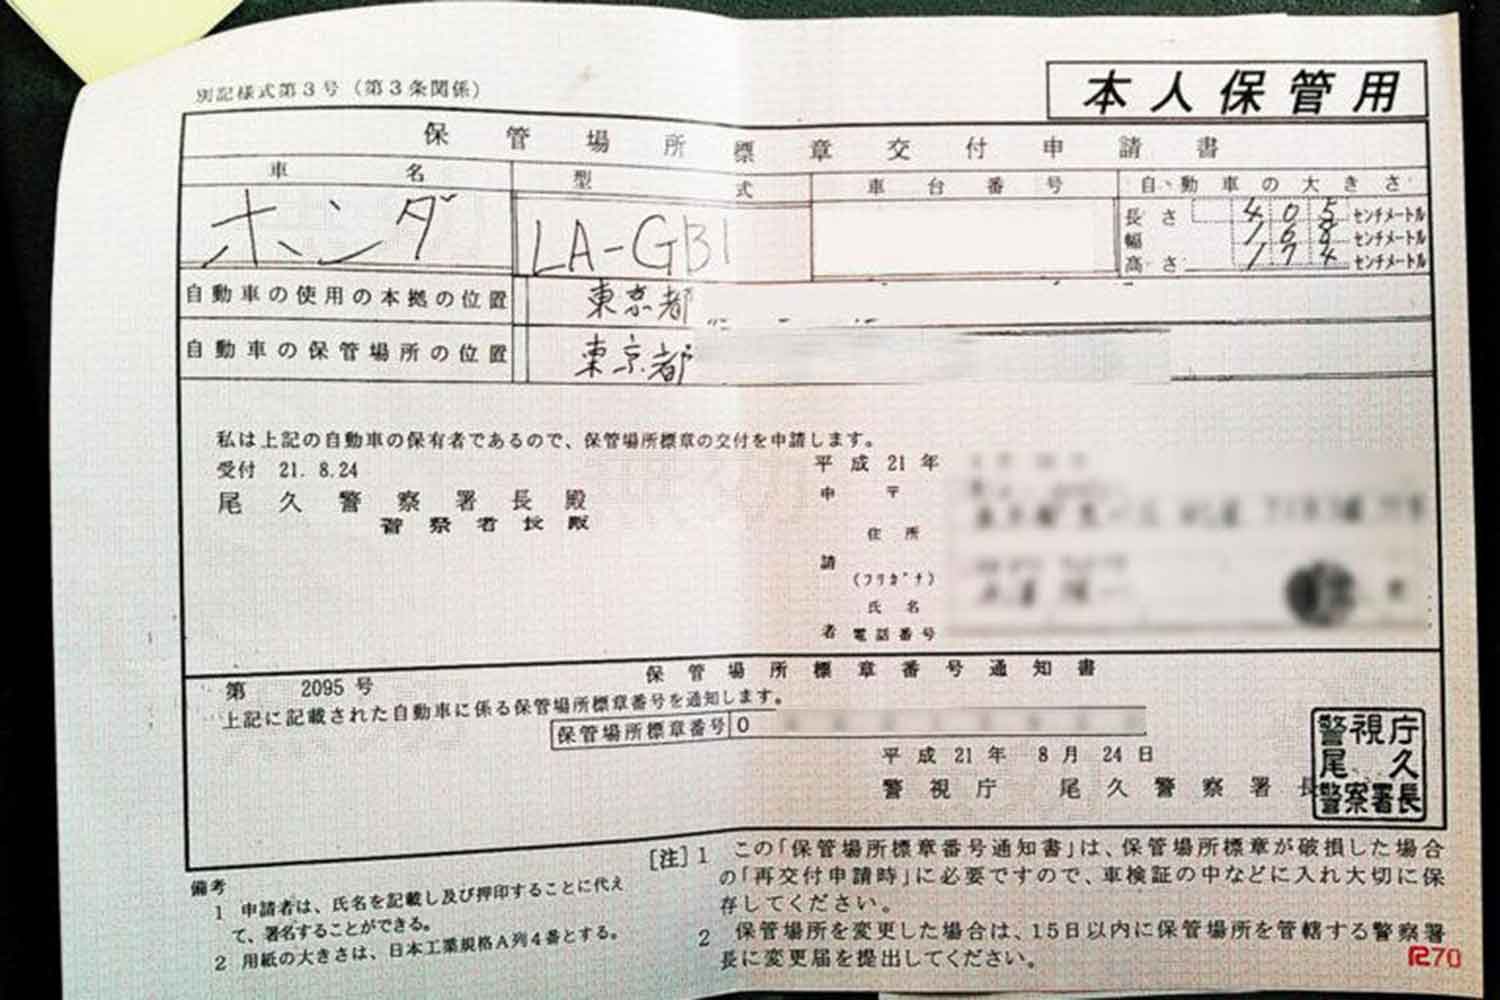 別記様式第3号（第3条関係）
本人保管用
保管場所標章交付申請書
車名 型式 車台番号 自動車の大きさ
ホンダ LA-GB1
長さ 405 センチメートル
幅 168 センチメートル
高さ 174 センチメートル
自動車の使用の本拠の位置 東京都
自動車の保管場所の位置 東京都
私は上記の自動車の保有者であるので、保管場所標章の交付を申請します。
受付 21. 8.24
平成21年
尾久警察署長殿
警察署長殿
申 〒
住所
請
(フリガナ)
氏名
者 電話番号
保管場所標章番号通知書
第 2095 号
上記に記載された自動車に係る保管場所標章番号を通知します。
保管場所標章番号 0
平成21年 8月 24日
警視庁 尾久警察署長
警視庁
尾久
警察署長
備考
1 申請者は、氏名を記載し及び押印することに代え
て、署名することができる。
2 用紙の大きさは、日本工業規格A列4番とする。
[注] 1 この「保管場所標章番号通知書」は、保管場所標章が破損した場合
の「再交付申請時」に必要ですので、車検証の中などに入れ大切に保
存してください。
2 保管場所を変更した場合は、15日以内に保管場所を管轄する警察署
長に変更届を提出してください。
R70